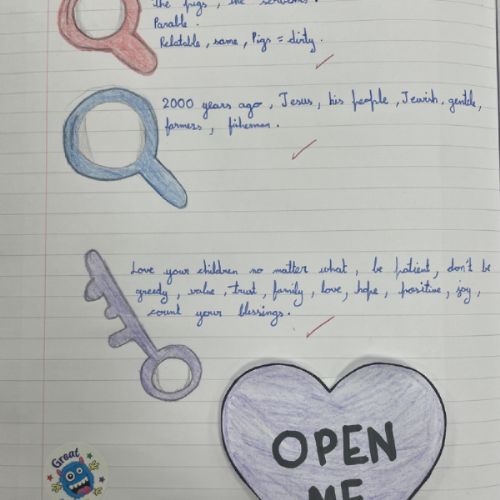 the pigs, the servants.
Parable.
Relatable, same, Pigs = dirty.
2000 years ago, Jesus, his people, Jewish, gentile,
farmers, fisherman.
Love your children no matter what, be patient, don't be
greedy, value, trust, family, love, hope, positive, joy,
count your blessings.
OPEN
ME
Great